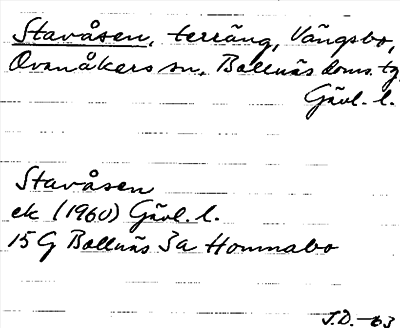 Stavåsen, terräng, Vängsbo,
Ovanåkers sn, Bollnäs doms. tg
Gävl. l.
Stavåsen
ek (1960) Gävl. l.
15 G Bollnäs 3a Homnabo
J.D.-63